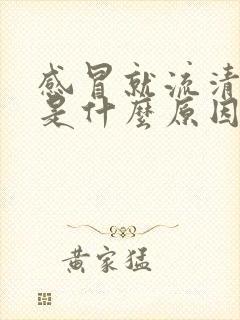 感冒就流清
是什麼原因
黃家猛